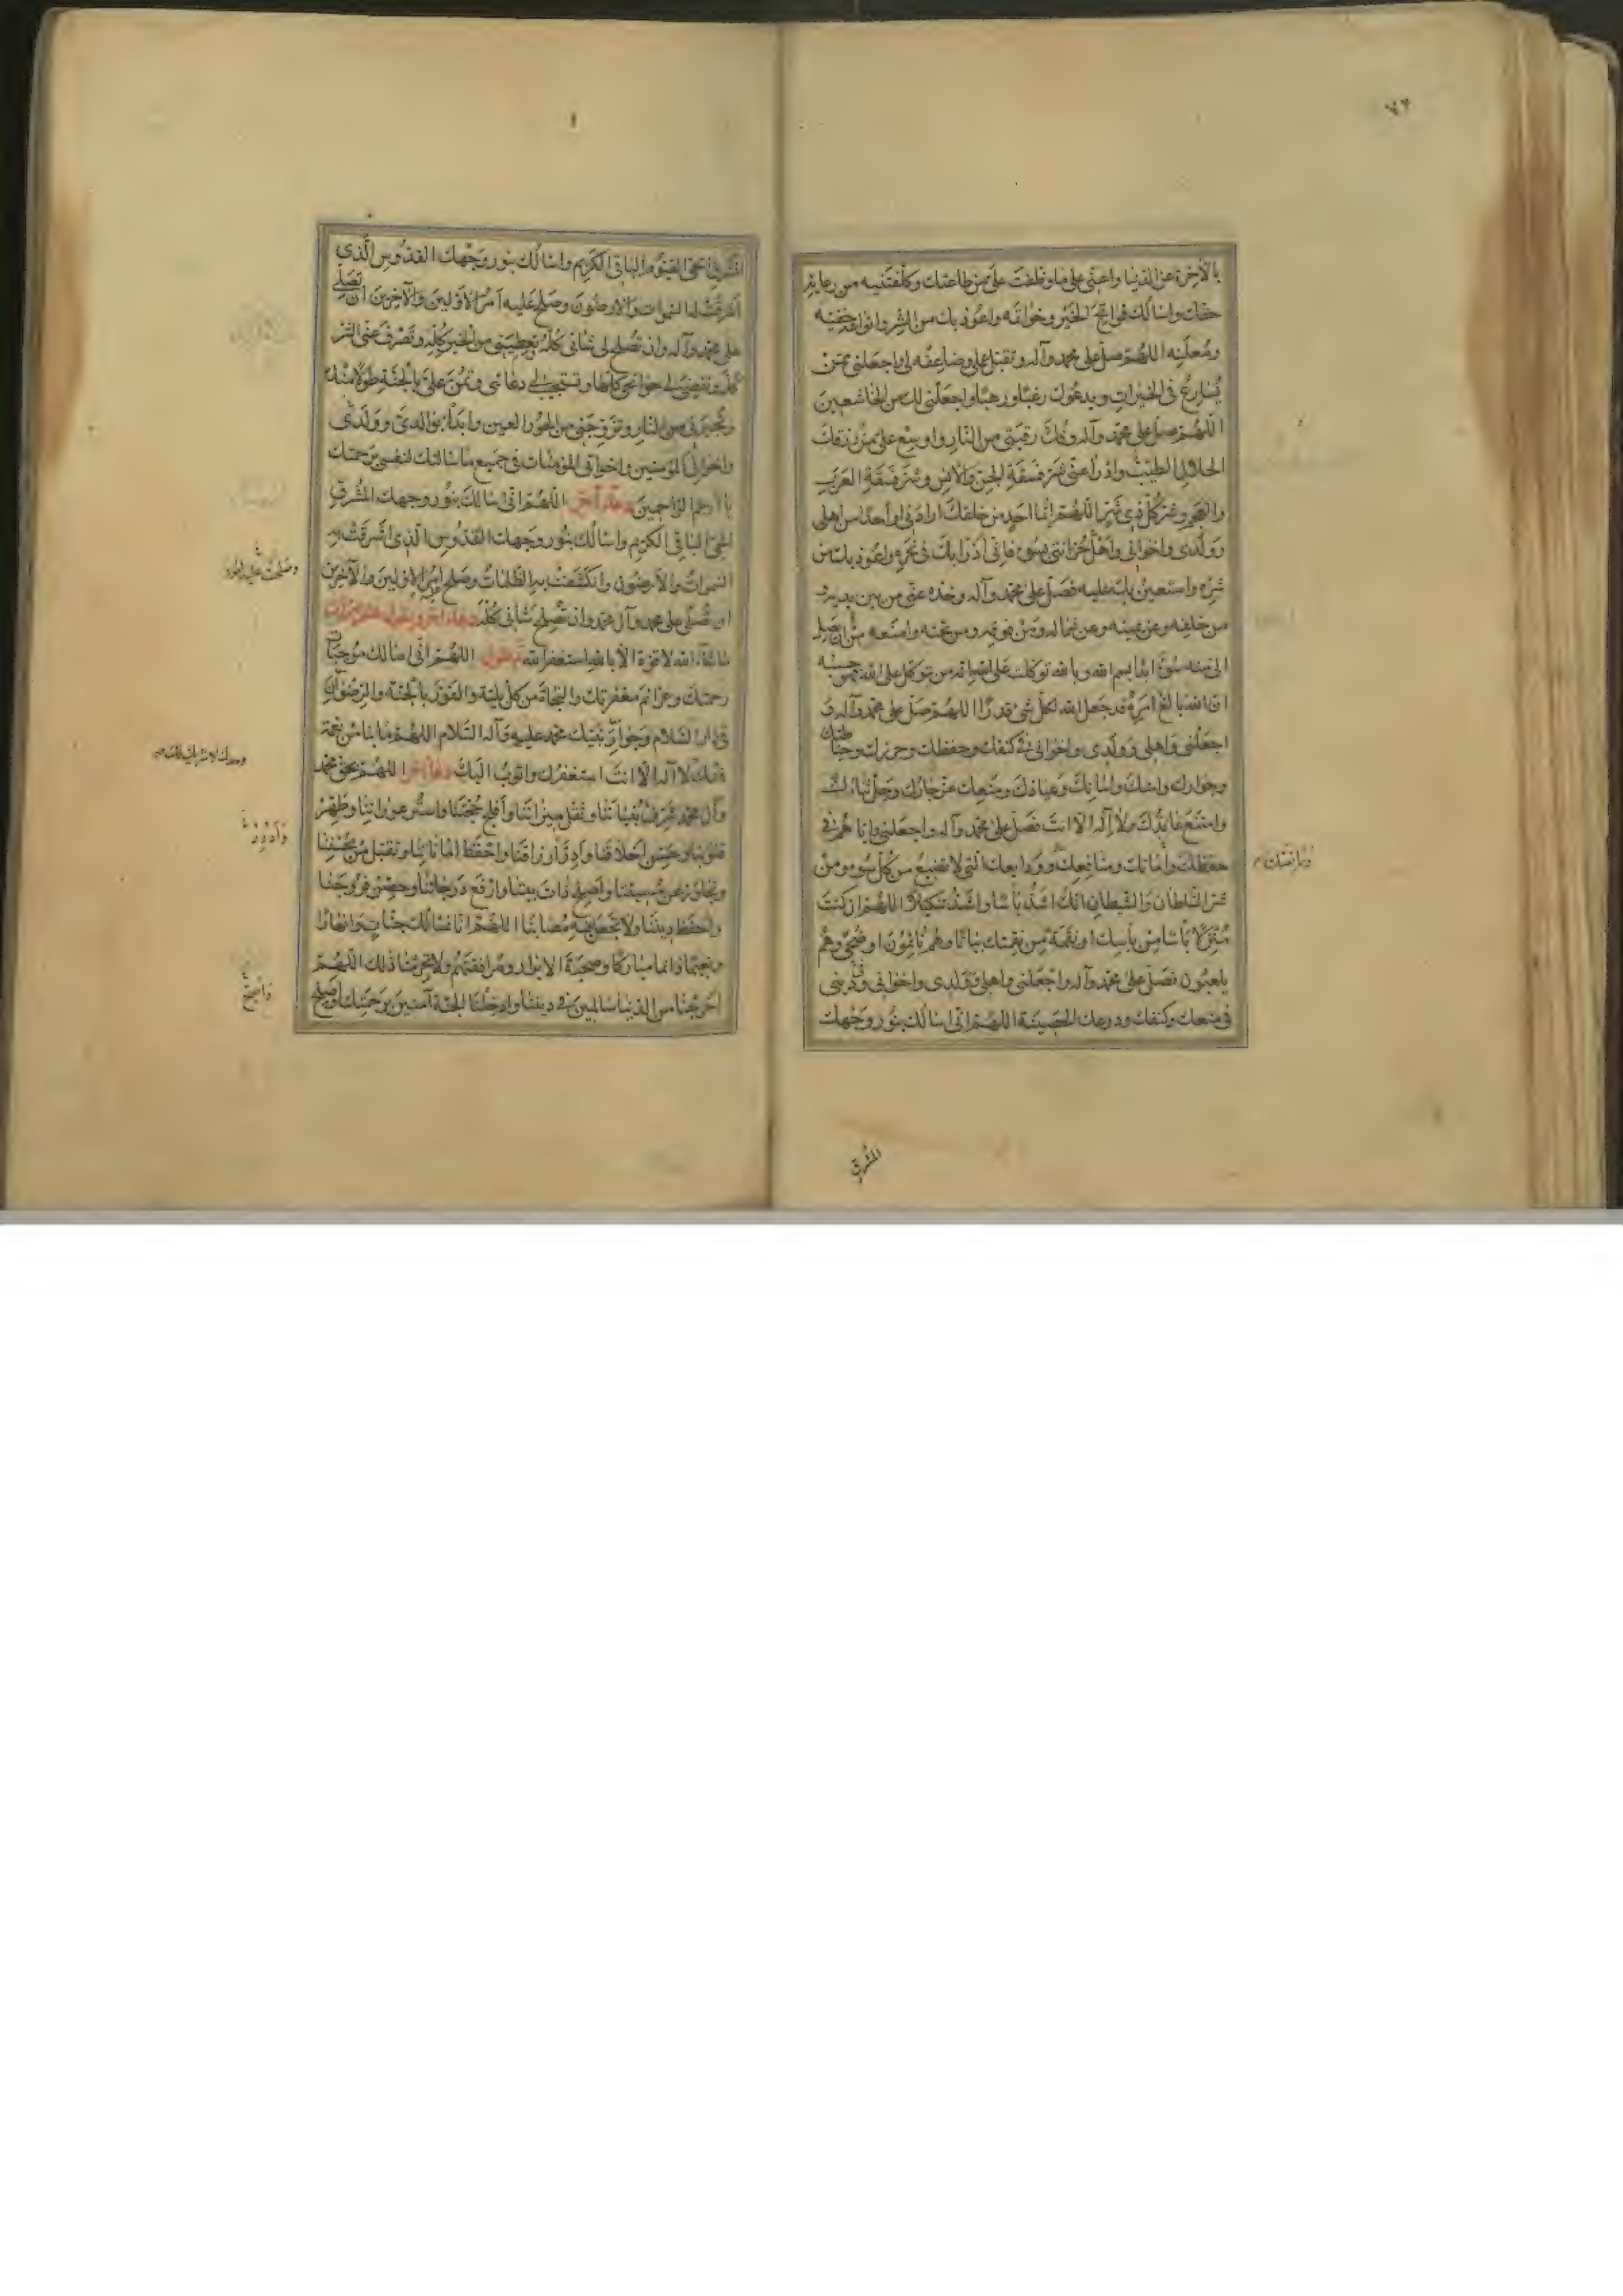 ٧٢
بالآخرة عن الدنيا واعنّى على ما وظفت علىّ من طاعتك وكلفتنيه من رعاية
حقك واسالك فواتح الخير وخواتمه واعوذ بك من الشر وانواعه خفيه
ومعلنه اللهم صل على محمد وآله وتقبل عملى وضاعفه لى واجعلنى ممن
يسارع فى الخيرات ويدعوك رغبا ورهبا واجعلنى لك من الخاشعين
اللهم صل على محمد وآله وفك رقبتى من النار واوسع علىّ من رزقك
الحلال الطيب وادرأ عنى شر فسقة الجن والانس وشر فسقة العرب
والعجم وشر كل ذى شر اللهم ايما احد من خلقك ارادنى او احدا من اهلى
وولدى واخوانى واهل حزانتى بسوء فانى ادرأ بك فى نحره واعوذ بك من
شره واستعين بك عليه فصل على محمد وآله وخذه عنى من بين يديه و
من خلفه وعن يمينه وعن شماله ومن فوقه ومن تحته وامنعه من ان يصل
الى منه سوء ابدا بسم الله وبالله توكلت على الله انه من يتوكل على الله فهو حسبه
ان الله بالغ امره قد جعل الله لكل شئ قدرا اللهم صل على محمد وآله و
اجعلنى واهلى وولدى واخوانى فى كنفك وحفظك وحرزك وحياطتك
وجوارك وامنك وامانك وعياذك ومنعك عز جارك وجل ثناؤك
وامتنع عائذك ولا اله الا انت فصل على محمد وآله واجعلنى واياهم فى
حفظك وامانك ومدافعتك وودايعك التى لا تضيع من كل سوء ومن
شر السلطان والشيطان انك اشد باسا واشد تنكيلا اللهم ان كنت
منزلا باسا من باسك او نقمة من نقمتك بياتا وهم نائمون او ضحى وهم
يلعبون فصل على محمد وآله واجعلنى واهلى وولدى واخوانى فى دينى
فى منعك وكنفك ودرعك الحصينة اللهم انى اسالك بنور وجهك
المشرق
المشرق الحى القيوم الباقى الكريم واسالك بنور وجهك القدوس الذى
اشرقت له السموات والارضون وصلح عليه امر الاولين والآخرين ان تصلى
على محمد وآله وان تصلح لى شانى كله وتعطينى من الخير كله وتصرف عنى الشر
كله وتقضى لى حوائجى كلها وتستجيب لى دعائى وتمن علىّ بالجنة طولا منك
وتجيرنى من النار وتزوجنى من الحور العين وابدأ بوالدىّ وولدى
واخوانى المؤمنين واخواتى المؤمنات فى جميع ما سالتك لنفسى برحمتك
يا ارحم الراحمين دعاء آخر اللهم انى اسالك بنور وجهك المشرق
الحى الباقى الكريم واسالك بنور وجهك القدوس الذى اشرقت به
السموات والارضون وانكشفت به الظلمات وصلح عليه امر الاولين والآخرين
ان تصلى على محمد وآل محمد وان تصلح شانى كله دعاء آخر
ما شاء الله لا قوة الا بالله استغفر الله ثم تقول اللهم انى اسالك موجبات
رحمتك وعزائم مغفرتك والنجاة من كل بلية والفوز بالجنة والرضوان
فى دار السلام وجوار نبيك محمد عليه وآله السلام اللهم ما بنا من نعمة
فمنك لا اله الا انت استغفرك واتوب اليك دعاء آخر اللهم بحق محمد
وآل محمد شرف بنياننا وثقل ميزاننا وافلج حجتنا واستر عوراتنا وطهر
قلوبنا وحسن اخلاقنا وادرّ ارزاقنا واحفظ اماناتنا وتقبل من محسننا
وتجاوز عن مسيئنا واصلح ذات بيننا وارفع درجاتنا وحصن فروجنا
واحفظ ديننا ولا تجعل فيه مصابنا اللهم انا نسالك جنات وانهارا
ونعيما دائما مباركا وصحبة الابرار ومرافقتهم ولا تحرمنا ذلك اللهم
اخرجنا من الدنيا سالمين فى ديننا وادخلنا الجنة آمنين برحمتك واصلح